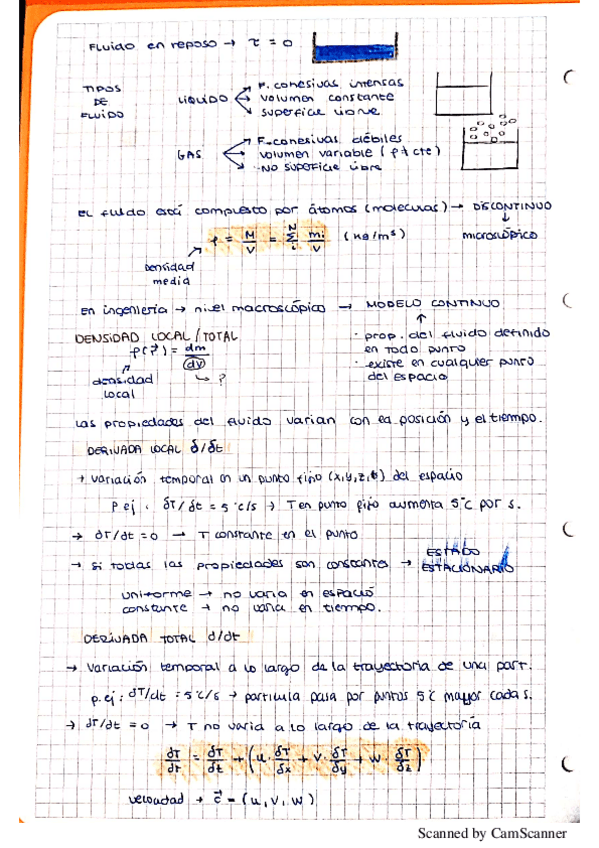 Fluido en reposo → τ = 0
TIPOS DE FLUIDO
LÍQUIDO
F. cohesivas intensas
volumen constante
superficie libre
GAS
F. cohesivas débiles
volumen variable (ρ ≠ cte)
NO superficie libre
El fluido está compuesto por átomos (moléculas) → DISCONTINUO
↓
microscópico
ρ = M/V = Σ mi/V (kg/m³)
densidad media
En ingeniería → nivel macroscópico → MODELO CONTINUO
DENSIDAD LOCAL / TOTAL
ρ(r⃗) = dm/dV
↳ ?
densidad local
· prop. del fluido definido en todo punto
· existe en cualquier punto del espacio
Las propiedades del fluido varían con la posición y el tiempo.
DERIVADA LOCAL δ/δt
→ variación temporal en un punto fijo (x,y,z,t) del espacio
P.ej: δT/δt = 5°C/s → T en punto fijo aumenta 5°C por s.
→ δT/δt = 0 → T constante en el punto
→ si todas las propiedades son constantes → ESTADO ESTACIONARIO
uniforme → no varía en espacio
constante → no varía en tiempo.
DERIVADA TOTAL d/dt
→ Variación temporal a lo largo de la trayectoria de una part.
p.ej: dT/dt = 5°C/s → partícula pasa por puntos 5°C mayor cada s.
→ dT/dt = 0 → T no varía a lo largo de la trayectoria
dT/dt = δT/δt + (u · δT/δx + v · δT/δy + w · δT/δz)
velocidad → c⃗ = (u, v, w)
Scanned by CamScanner